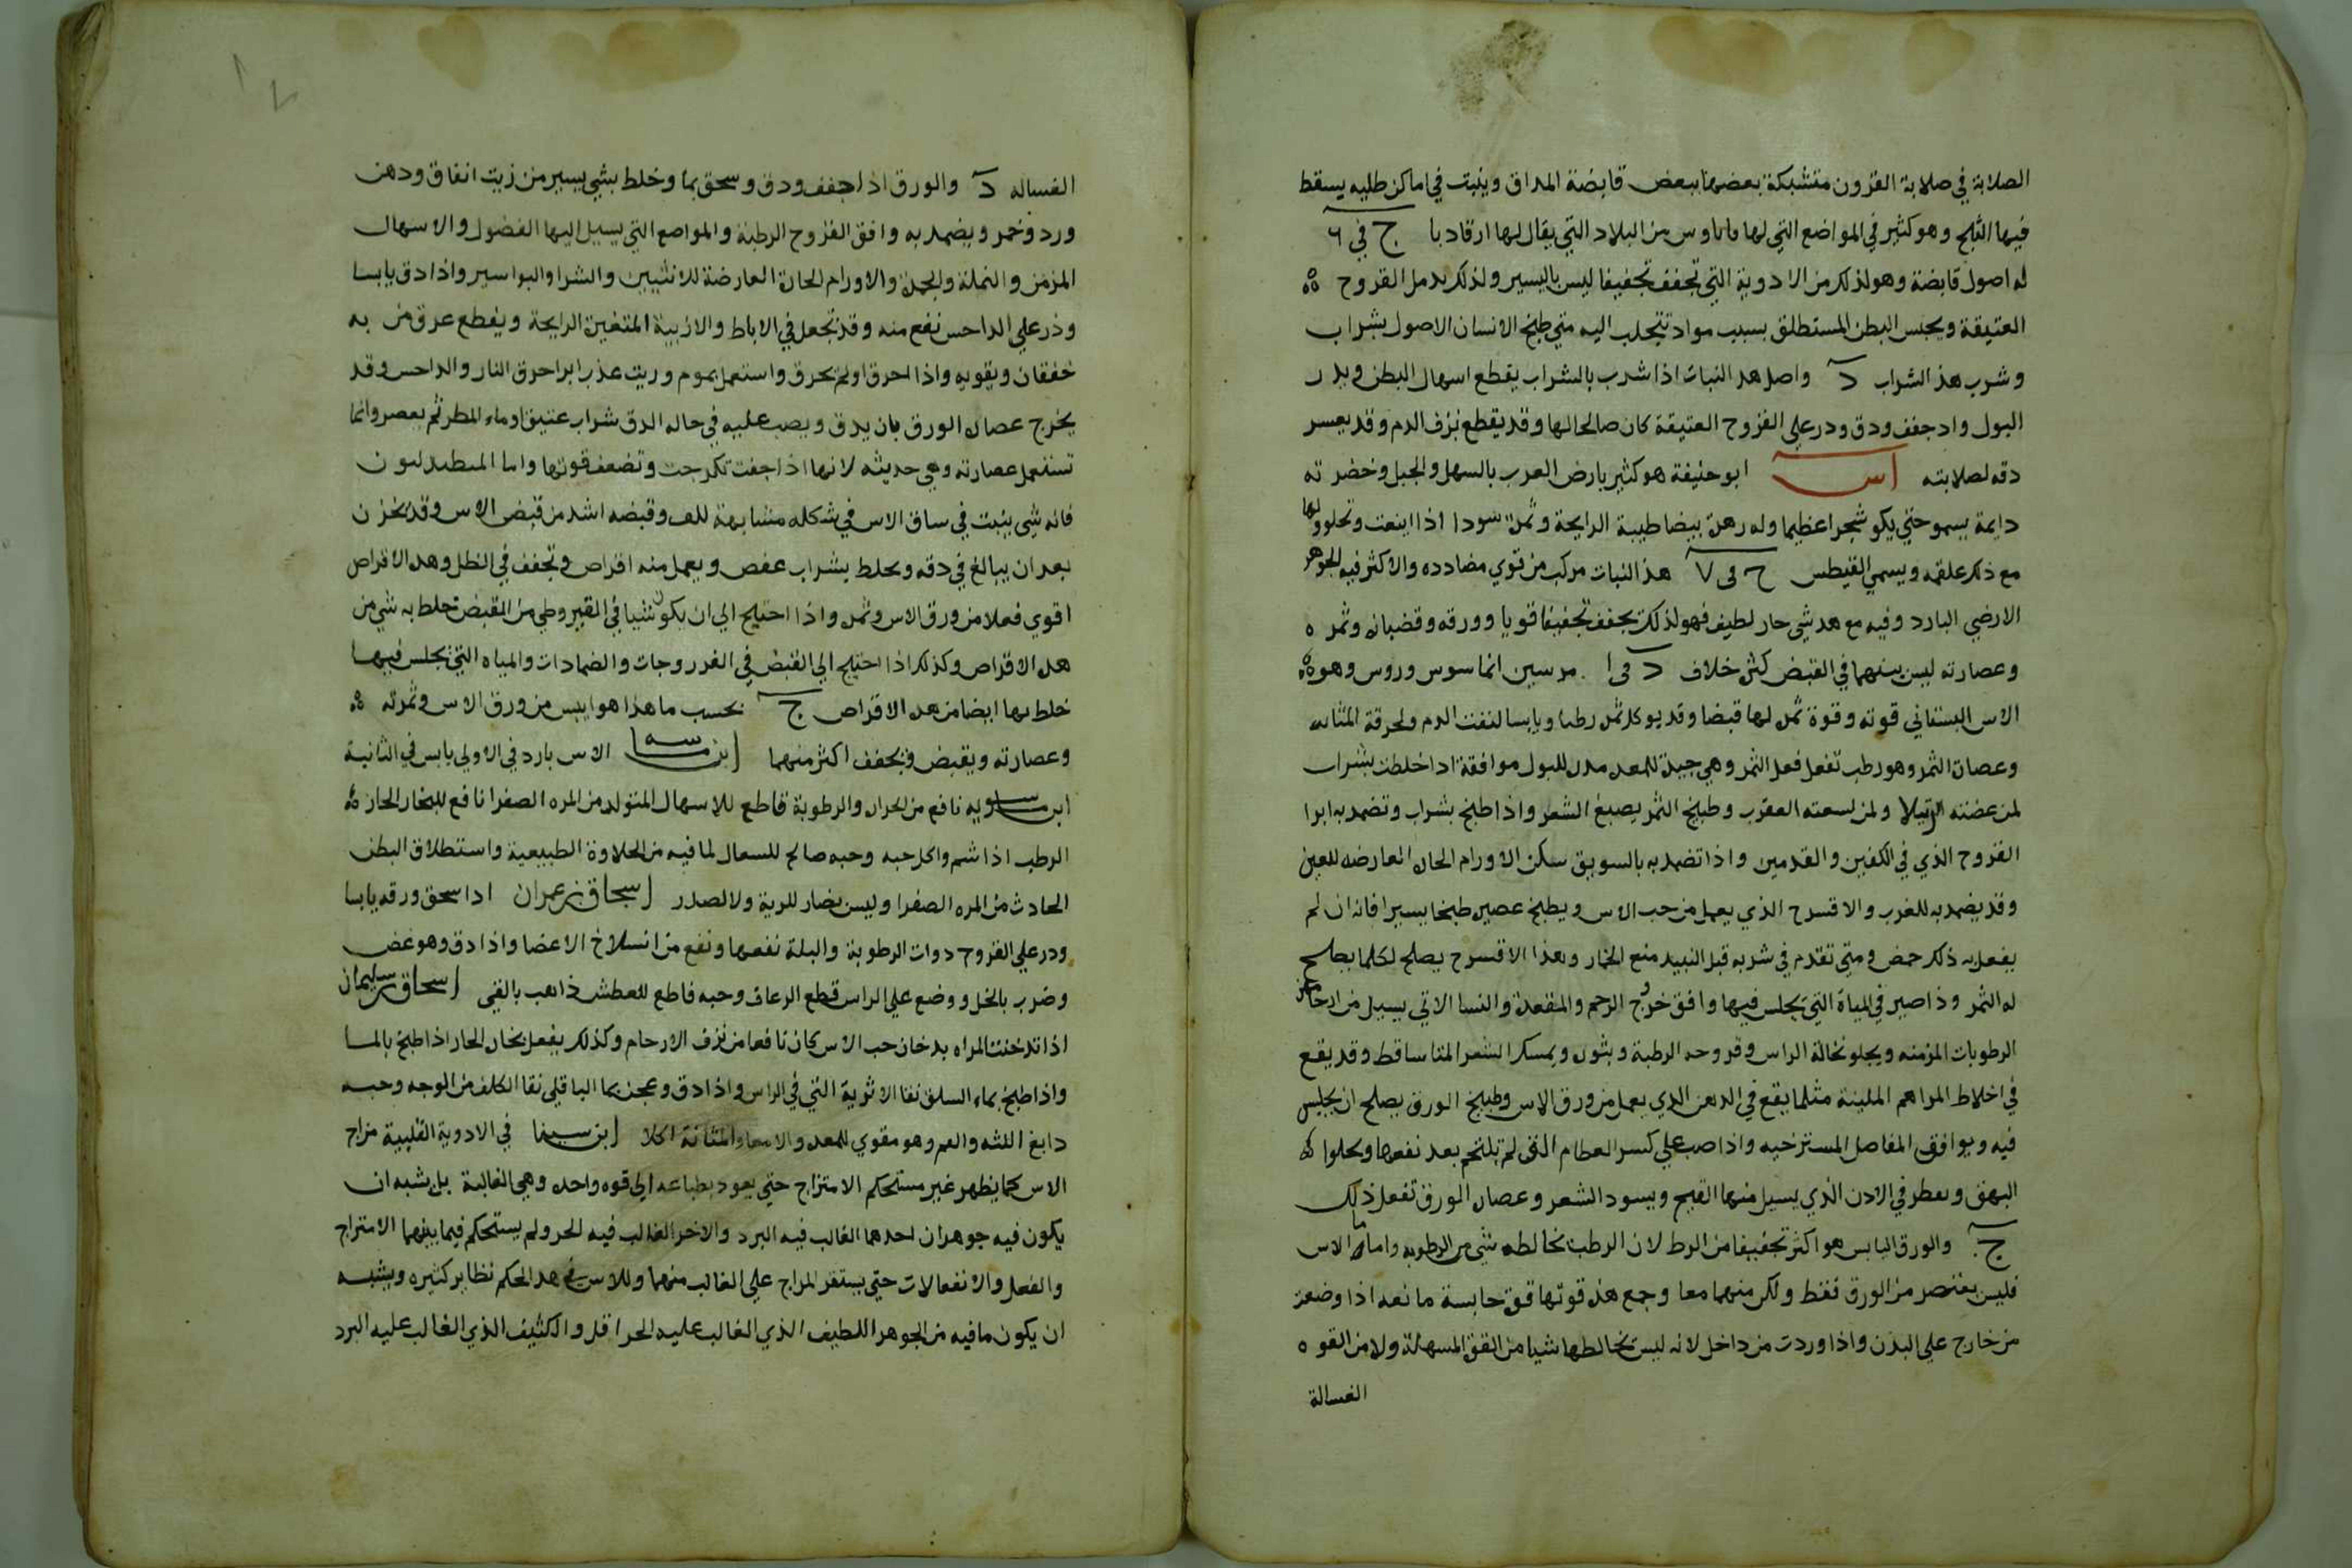 الصلابة في صلابة القرون متشبكة بعضها ببعض قابضة المداق وينبت في اماكن طليه يسقط
فيها الثلج وهو كثير في المواضع التي لها ماماوس من البلاد التي يقال لها ارقاديا ج في ٦
له اصول قابضة وهو لذلك من الادوية التي تجفف تجفيفا ليس باليسير ولذلك يدمل القروح
العتيقة ويحبس البطن المستطلق بسبب مواد تتجلب اليه متي طبخ الانسان الاصول بشراب
وشرب هذ الشراب د واصل هد النبات اذا شرب بالشراب يقطع اسهال البطن ويدر
البول واد جفف ودق ودر علي القروح العتيقة كان صالحا لها وقد يقطع نزف الدم وقد يعسر
دقه لصلابته اس ابو حنيفة هو كثير بارض العرب بالسهل والجبل وخضرته
دايمة يسمو حتي يكو شجرا عظيما وله زهرة بيضا طيبة الرايحة وثمرة سودا اذا اينعت وتحلوولها
مع ذلك علقمه ويسمي القيطس ج في ٧ هذ النبات مركب من قوي مضادده والاكثر فيه الجوهر
الارضي البارد وفيه مع هد شي حار لطيف فهو لذلك يجفف تجفيفا قويا وورقه وقضبانه وثمره
وعصارته ليس بينهما في القبض كثر خلاف د في ا مرسين انما سوس وروس وهو
الاس البستاني قوته وقوة ثمره لها قبضا وقد يوكل ثمره رطبا ويابسا لنفث الدم ولحرقة المثانه
وعصارة الثمر وهو رطب تفعل فعل الثمر وهي جيدة للمعده مدره للبول موافقة اذا خلطت بشراب
لمن عضته الرتيلا ولمن لسعته العقرب وطبيخ الثمر يصبغ الشعر واذا طبخ بشراب وتضمد به ابرا
القروح الذي في الكفين والقدمين واذا تضمد به بالسويق سكن الاورام الحاره العارضه للعين
وقد يضمد به للغرب والاقسرح الذي يعمل من حب الاس ويطبخ عصيره طبخا يسيرا فانه ان لم
يفعل به ذلك حمض ومتي تقدم في شربه قبل النبيد منع الخمار وهذا الاقسرح يصلح لكلما يصلح
له الثمر وذا صير في المياة التي يجلس فيها وافق خروج الرحم والمقعدة والنسا الاتي يسيل من ارحامهن
الرطوبات المزمنه ويجلو نخالة الراس وقروحه الرطبة وبثوره ويمسك الشعر المتا ساقط وقد يقع
في اخلاط المراهم الملينة مثلما يقع في الدهن الدي يعمل من ورق الاس وطبيخ الورق يصلح ان يجلس
فيه ويوافق المفاصل المسترخيه واذا صب علي كسر العظام التي لم تلتحم بعد نفعها ويجلوا
البهق ويقطر في الادن الذي يسيل منها القيح ويسود الشعر وعصارة الورق تفعل ذلك
ج والورق اليابس هو اكثر تجفيفا من الرطب لان الرطب تخالطه شي من الرطوبه واما الاس
فليس يعتصر من الورق فقط ولكن منهما معا وجمع هذه قوتها قوة حابسة مانعه اذا وضعت
من خارج علي البدن واذا وردت من داخل لانه ليس تخالطها شيا من القوة المسهلة ولا من القوه
الغسالة
الغساله د والورق اذا جفف ودق وسحق بما وخلط بشي يسير من زيت انفاق ودهن
ورد وخمر ويضمد به وافق القروح الرطبة والمواضع التي يسيل اليها الفضول والاسهال
المزمن والنملة والجمرة والاورام الحارة العارضة للانثيين والشرا والبواسير واذا دق يابسا
وذر علي الداحس نفع منه وقد تجعل في الاباط والاربية المتغيرة الرايحة ويقطع عرق من به
خفقان ويقويه واذا احرق او لم يحرق واستعمل بموم وزيت عذب ابرا حرق النار والداحس وقد
يخرج عصاره الورق بان يدق ويصب عليه في حاله الدق شراب عتيق او ماء المطر ثم يعصر وانما
تستعمل عصارته وهي حديثه لانها اذا جفت تكرجت وتضعف قوتها واما
فانه شي ينبت في ساق الاس في شكله مشابهة للكف وقبضه اشد من قبض الاس وقد يخزن
بعد ان يبالغ في دقه ويخلط بشراب عفص ويعمل منه اقراص وتجفف في الظل وهده الاقراص
اقوي فعلا من ورق الاس وثمره واذا احتيج الي ان يكون شيا في القيروطي من القبض تخلط به شي من
هده الاقراص وكذلك اذا احتيج الي القبض في الفرزوجات والضمادات والمياه التي نجلس فيها
خلط بها ايضا من هده الاقراص ج بحسب ما هذا هو ايبس من ورق الاس وثمرته
وعصارته ويقبض ويجفف اكثر منهما ابن ماسه الاس بارد في الاولي يابس في الثانية
ابن ماسويه نافع من الحراره والرطوبة قاطع للاسهال المتولد من المره الصفرا نافع للبخار الحار
الرطب اذا شم واكل حبه وحبه صالح للسعال لما فيه من الحلاوة الطبيعية واستطلاق البطن
الحادث من المره الصفرا وليس بضار للرية ولا لصدر اسحاق بن عمران اذا سحق ورقه يابسا
ودر علي القروح دوات الرطوبة والبلة نفعها ونفع من انسلاخ الاعضا واذا دق وهو غض
وضرب بالخل ووضع علي الراس قطع الرعاف وحبه قاطع للعطش ذاهب بالقي اسحاق بن سليمان
اذا تدخنت المراه بدخان حب الاس كان نافعا من نزف الارحام وكذلك يفعل بخار الحار اذا طبخ بالما
واذا طبخ بماء السلق نقا الاثرية التي في الراس واذا دق وعجن بما الباقلي نقا الكلف من الوجه وحبه
دابغ اللثه والفم وهو مقوي للمعده والامعا والمثانة اكلا ابن سينا في الادوية القلبية مزاج
الاس كما يظهر غير مستحكم الامتزاج حتي يعود بطباعه الي قوه واحده وهي الغالبة بل يشبه ان
يكون فيه جوهران احدهما الغالب فيه البرد والاخر الغالب فيه الحر ولم يستحكم فيما بينهما الامتزاج
والفعل والانفعالات حتي يستقر المزاج علي الغالب منهما وللاس في هد الحكم نظاير كثيره ويشبه
ان يكون ما فيه من الجوهر اللطيف الذي الغالب عليه الحر اقل والكثيف الذي الغالب عليه البرد